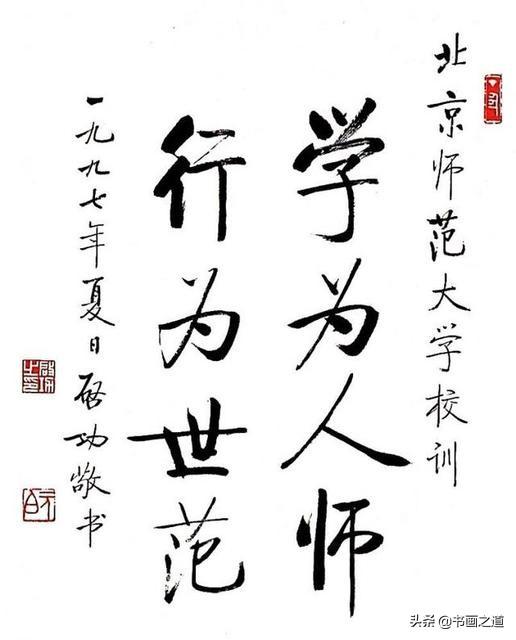 北京师范大学校训
学为人师
行为世范
一九九七年夏日启功敬书
头条@书画之道